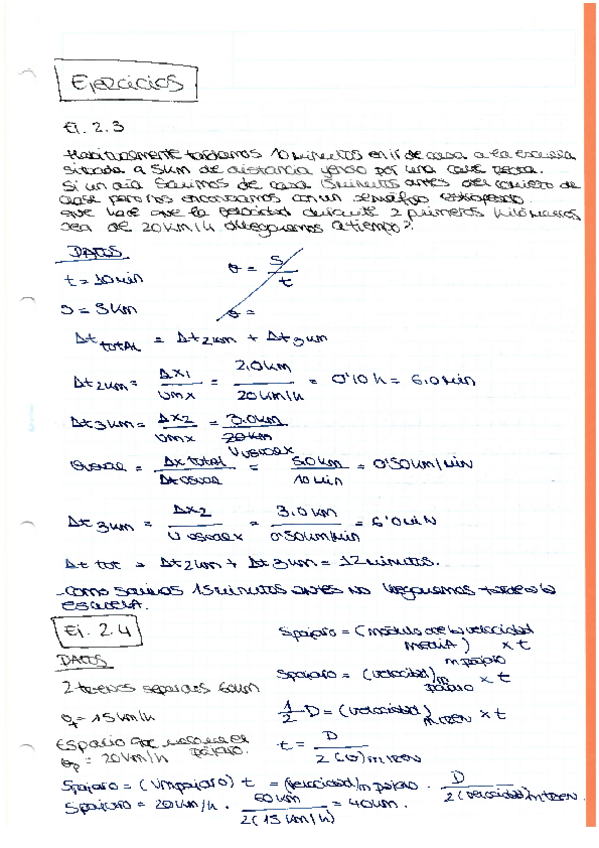 Ejercicios
Ej. 2.3
Habitualmente tardamos 10 minutos en ir de casa a la escuela
situada a 5km de distancia yendo por una calle recta.
Si un día salimos de casa 15 minutos antes del comienzo de
clase pero nos encontramos con un semáforo estropeado
que hace que la velocidad durante 2 primeros kilómetros
sea de 20km/h ¿llegaremos a tiempo?
DATOS
t = 10 min
s = 5km
v = s / t
v =
Δt TOTAL = Δt 2km + Δt 3km
Δt 2km = Δx1 / vmx = 2,0km / 20km/h = 0'10 h = 6,0 min
Δt 3km = Δx2 / vmx = 3,0km / 20km
v usual x
v usual = Δx total / Δt usual = 5,0km / 10 min = 0'50km/min
Δt 3km = Δx2 / v usual x = 3,0km / 0'50km/min = 6'0 min
Δt tot = Δt 2km + Δt 3km = 12 minutos.
- Como salimos 15 minutos antes no llegaremos tarde a la
escuela.
Ej. 2.4
DATOS
2 trenes separados 60km
v = 15km/h
Espacio que recorre el pájaro.
vp = 20km/h
Spájaro = (módulo de la velocidad media) m pájaro x t
Spájaro = (velocidad)m pájaro x t
1/2 D = (velocidad) m tren x t
t = D / 2(v) m tren
Spájaro = (vm pájaro) t = (velocidad)m pájaro · D / 2(velocidad)m tren
Spájaro = 20km/h · 60km / 2(15km/h) = 40km.